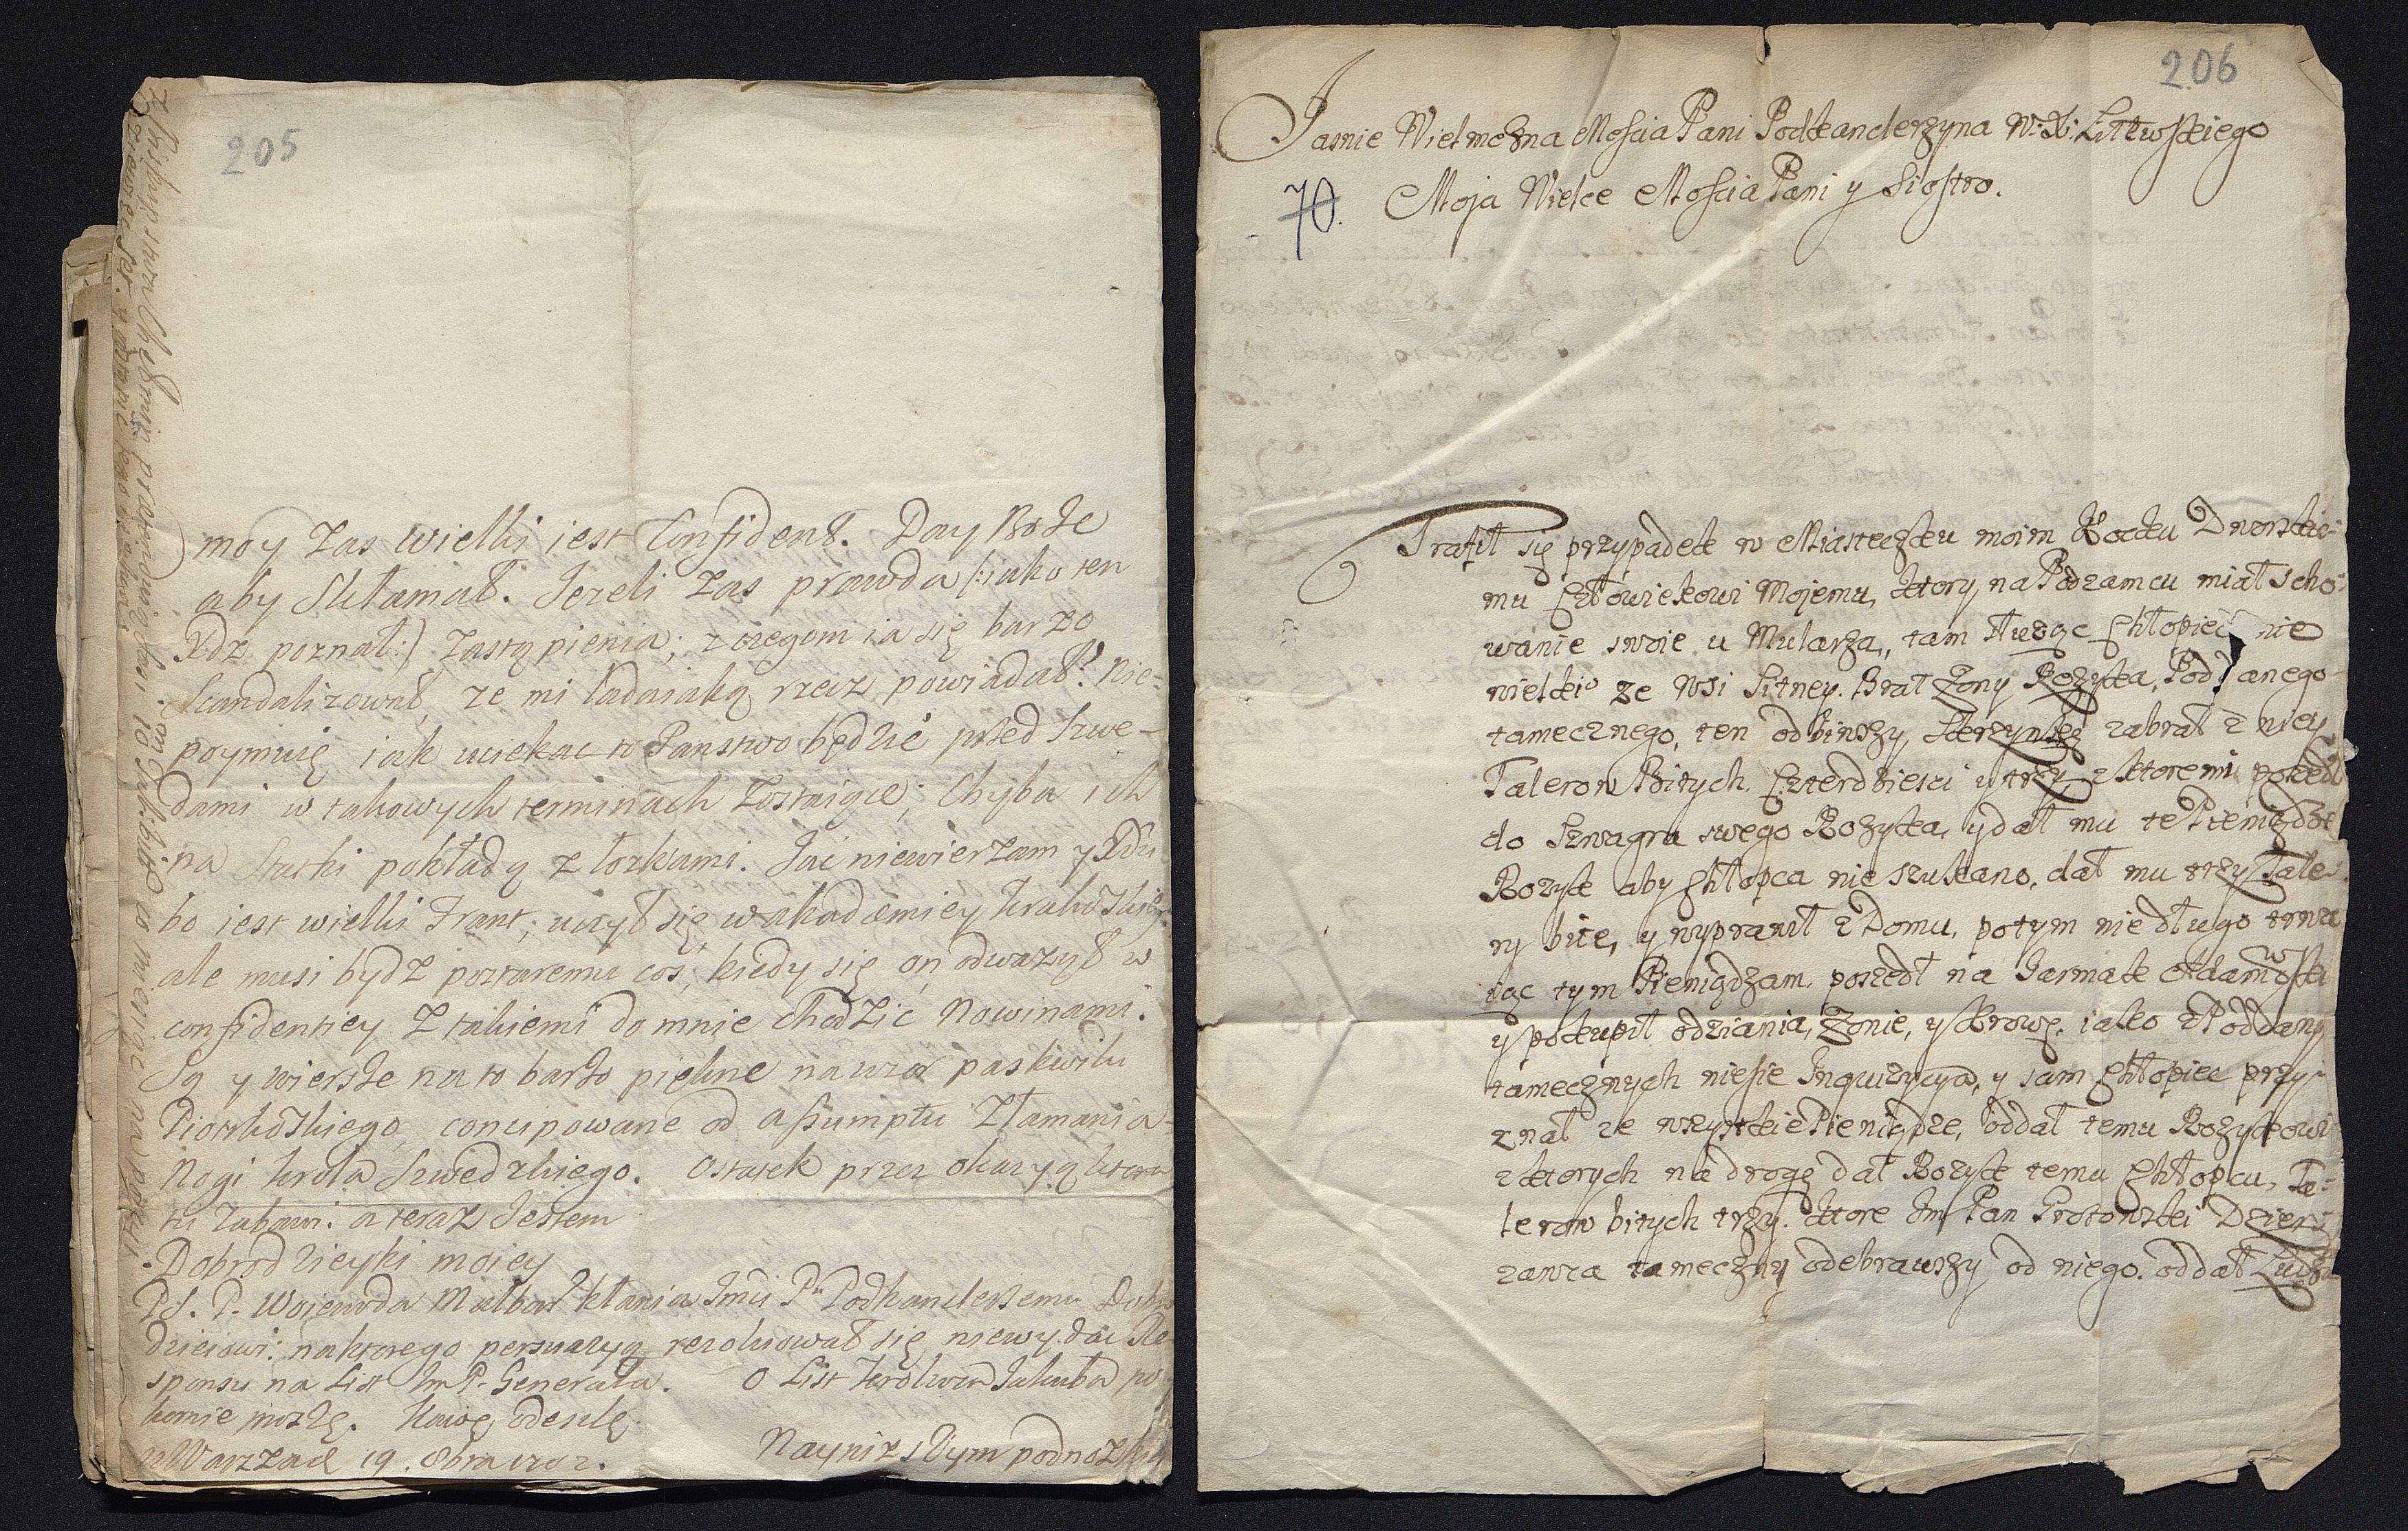 205
moy zas wielki iest Confident. Day Boze
aby skłamał. Jezeli zas prawda (:iako ten
Xdz poznał:) zastąpienia; z czegom ia się barzo
Scandalizował, ze mi ladaiaką rzecz powiadał. Nie-
poymuię iak uciekac to Panstwo będzie przed Szwe-
dami w takowych terminach zostaiące; Chyba ich
na Statki pokładą z łozkami. Jac niewierzam y Xdu
bo iest wielki Frant, uczył się w akademiey krakowskiey
ale musi bydz postaremu cos, kiedy się on odwazył w
confidentiey z takiemi do mnie chodzic Nowinami.
Są y wiersze na to barzo piękne na wzor paskwilu
Piorkowskiego, concipowane od assumptu złamania
Nogi krola Szwedzkiego. Ostatek przez okazyą ktora
tu zabawi: a teraz Jestem
Dobrodzieyki moiey
PS. P. Woiewoda Malbor kłania Jmci Pu Podkanclerzemu Dobro
dzieiowi: na ktorego perswazyą rezolwował się niewydac Re
sponsu na List Jm P. Generała. O List krolewica Jakuba po
kornie proszę. Kawę odeszlę
w Warszaw 19. 8bra 1702.
Nayniższym podnozkiem
206
Jasnie Wielmozna Moscia Pani Podkanclerzyna W: X: Littewskiego
70. Moja Wielce Moscia Pani y Siostro.
Trafił się przypadek w Miasteczku moim Kocku Dworskie-
mu Człowiekowi Mojemu, ktory na Podzamcu miał scho-
wanie swoie u Mularza, tam służąc Chłopiec nie
wielki ze Wsi Sitney. Brat Zony Bozyka, Poddanego
tamecznego, ten odbiwszy Skrzynkę zabrał z niey
Talerow Bitych Czterdziesci y trzy z ktoremi poszedł
do Szwagra swego Bozyka, y dał mu te Pieniądze
Bozyk aby Chłopca nie szukano, dał mu trzy Tale-
ry bite, y wyprawił z Domu, potym nie długo trwa
iąc tym Pieniądzam, poszedł na Jarmak Adamowski
y pokupił odziania, Zonie, y Krowę, iako z Poddany
tamecznych niesie Inquizycya, y sam Chłopiec przy-
znał ze wszystkie Pieniądze, oddał temu Bozykowi
z ktorych na drogę dał Bozyk temu Chłopcu, Ta-
lerow bitych trzy. ktore Jm Pan Grotowski Dzier-
zawca tameczny odebrawszy od niego. oddał